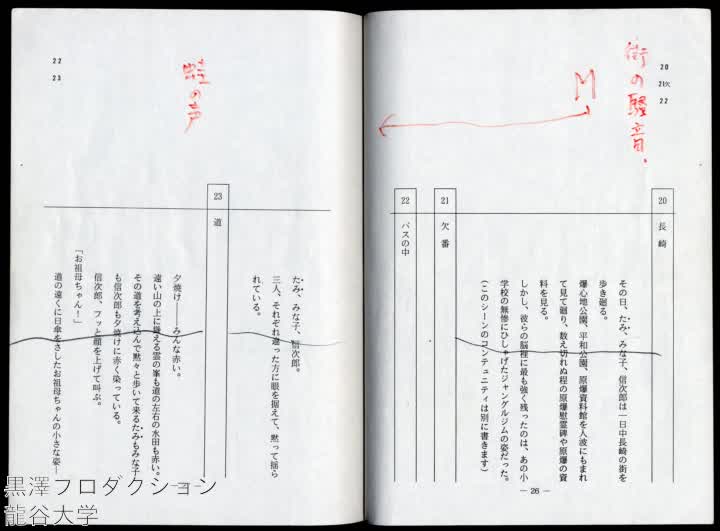 20
21欠
22
街の騒音、
M
20 長崎
その日、たみ、みな子、信次郎は一日中長崎の街を
歩き廻る。
爆心地公園、平和公園、原爆資料館を人波にもまれ
て見て廻り、数え切れぬ程の原爆慰霊碑や原爆の資
料を見る。
しかし、彼らの脳裡に最も強く残ったのは、あの小
学校の無惨にひしゃげたジャングルジムの姿だった。
(このシーンのコンテュニティは別に書きます)
21 欠番
22 バスの中
— 26 —
22
23
蛙の声
たみ、みな子、信次郎。
三人、それぞれ違った方に眼を据えて、黙って揺ら
れている。
23 道
夕焼け――みんな赤い。
遠い山の上に聳える雲の峯も道の左右の水田も赤い。
その道を考え込んで黙々と歩いて来るたみもみな子
も信次郎も夕焼けに赤く染っている。
信次郎、フッと顔を上げて叫ぶ。
「お祖母ちゃん!」
道の遠くに日傘をさしたお祖母ちゃんの小さな姿―
黒澤プロダクション
龍谷大学